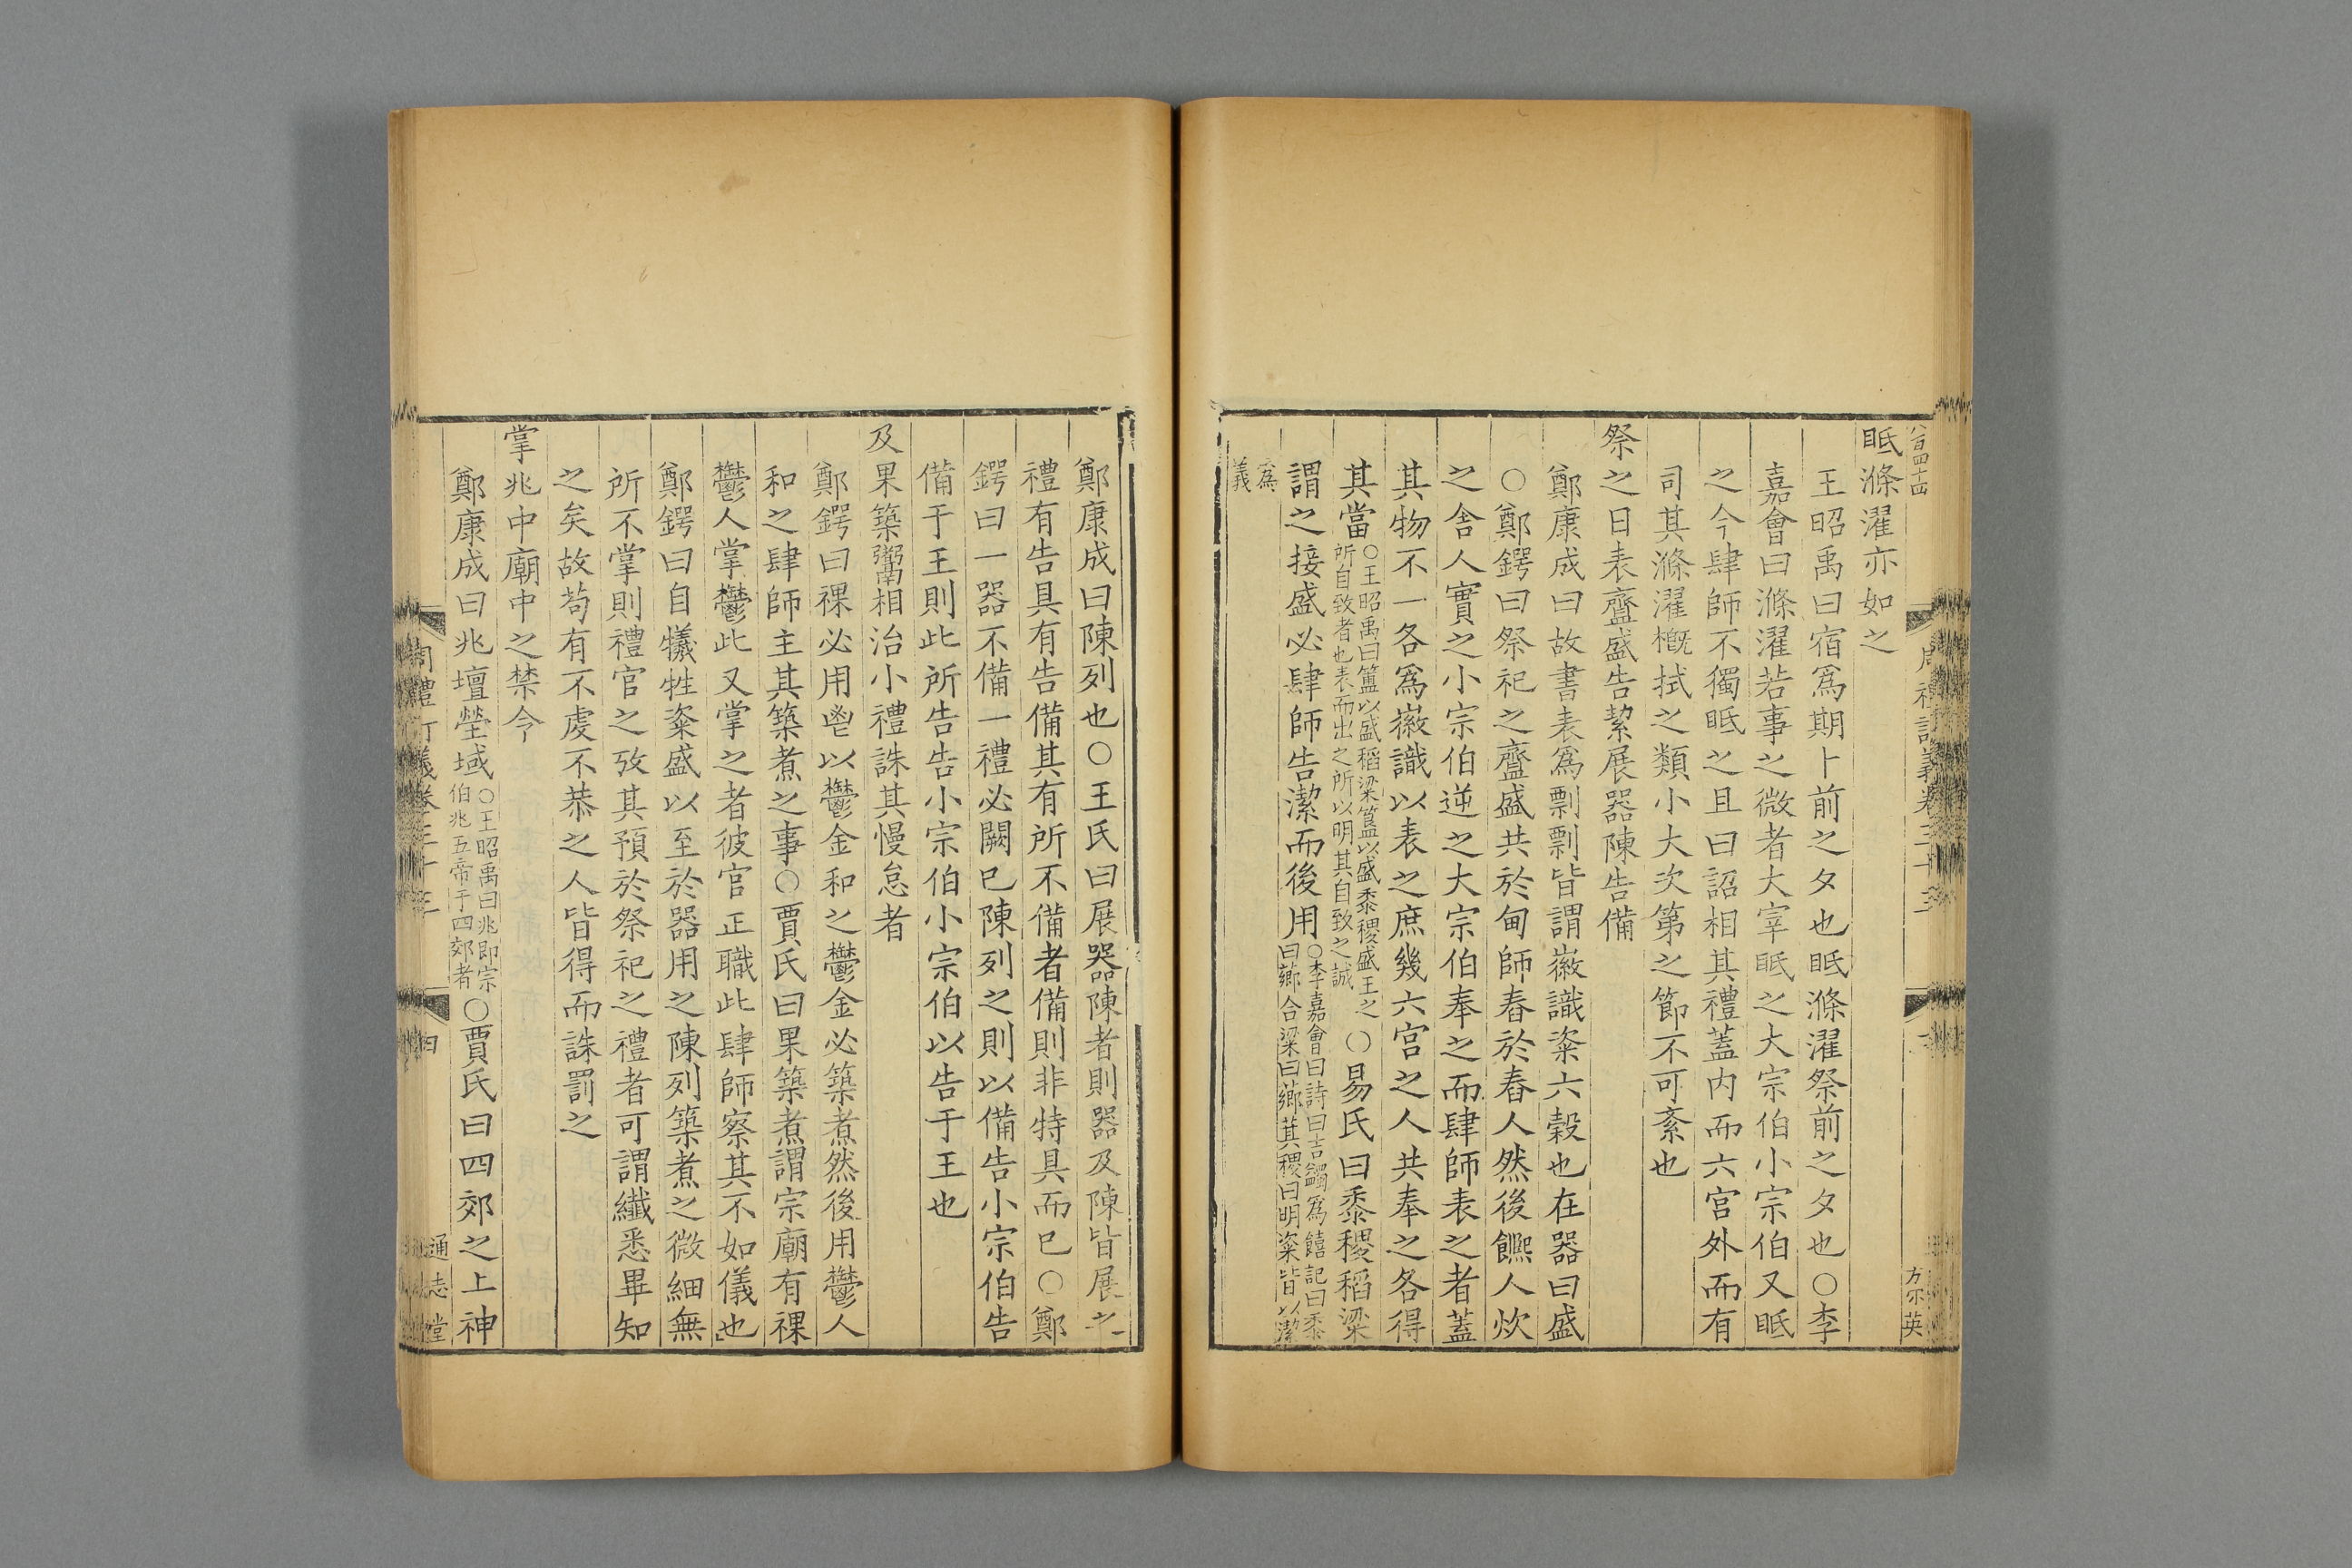 八百四十四
眡滌濯亦如之
王昭禹曰宿爲期卜前之夕也眡滌濯祭前之夕也○李
嘉會曰滌濯若事之微者大宰眡之大宗伯小宗伯又眡
之今肆師不獨眡之且曰詔相其禮蓋内而六宫外而有
司其滌濯槪拭之類小大次第之節不可紊也
祭之日表齍盛告絜展器陳告備
鄭康成曰故書表爲剽剽皆謂徽識粢六穀也在器曰盛
○鄭鍔曰祭祀之齍盛共於甸師舂於舂人然後饎人炊
之舍人實之小宗伯逆之大宗伯奉之而肆師表之者蓋
其物不一各爲徽識以表之庶幾六宫之人共奉之各得
其當○王昭禹曰簠以盛稻粱簋以盛黍稷盛王之所自致者也表而出之所以明其自致之誠○易氏曰黍稷稻粱
謂之接盛必肆師告潔而後用○李嘉會曰詩曰吉蠲爲饎記曰黍曰薌合粱曰薌萁稷曰明粢皆以潔
爲義
方尔英
鄭康成曰陳列也○王氏曰展器陳者則器及陳皆展之
禮有告具有告備其有所不備者備則非特具而已○鄭
鍔曰一器不備一禮必闕已陳列之則以備告小宗伯告
備于王則此所告告小宗伯小宗伯以告于王也
及果築鬻相治小禮誅其慢怠者
鄭鍔曰祼必用鬯以鬱金和之鬱金必築煮然後用鬱人
和之肆師主其築煮之事○賈氏曰果築煮謂宗廟有祼
鬱人掌鬱此又掌之者彼官正職此肆師察其不如儀也
鄭鍔曰自犧牲粢盛以至於器用之陳列築煮之微細無
所不掌則禮官之攷其預於祭祀之禮者可謂纎悉畢知
之矣故苟有不虔不恭之人皆得而誅罰之
掌兆中廟中之禁令
鄭康成曰兆壇塋域○王昭禹曰兆即宗伯兆五帝于四郊者○賈氏曰四郊之上神
周禮訂義卷三十三
四
通志堂